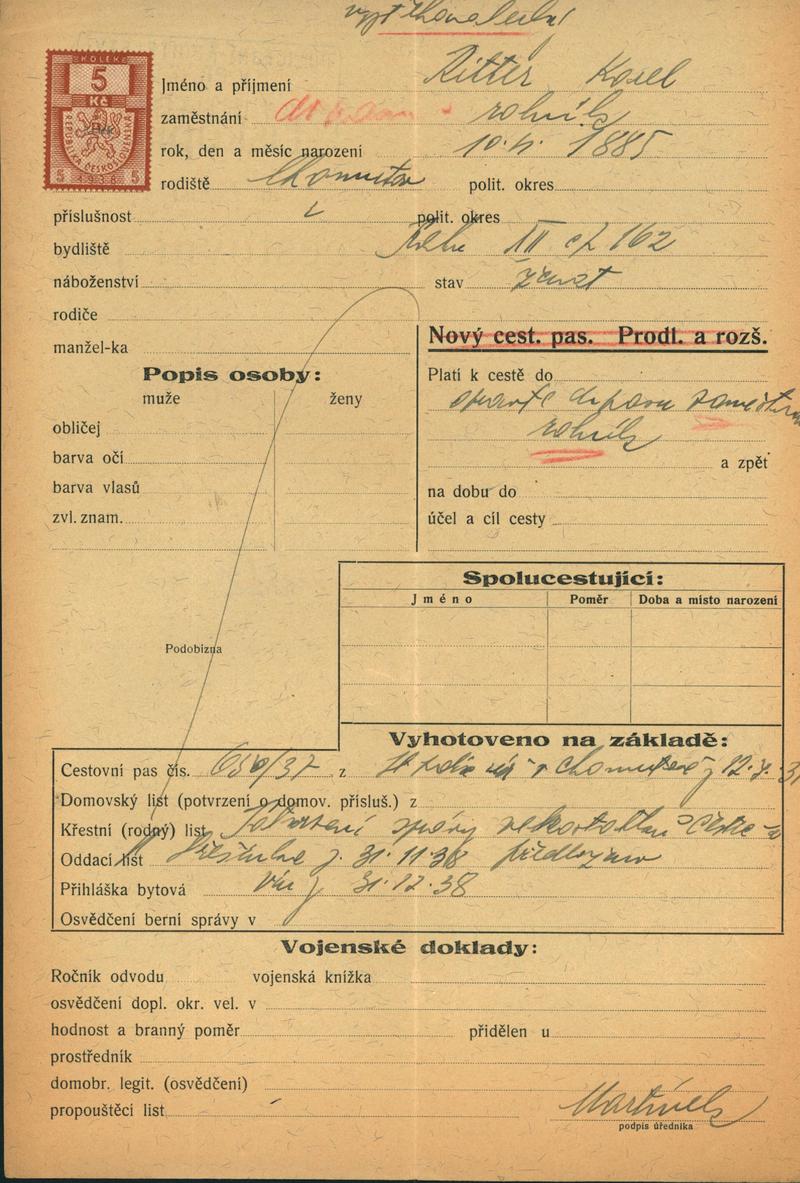 KOLEK
5
Kč
REPUBLIKA ČESKOSLOVENSKÁ
5 1938 5
Jméno a příjmení Ritter Karel
zaměstnání rolník
rok, den a měsíc narození 1885
rodiště Chomutov polit. okres
příslušnost polit. okres
bydliště XII čp 162
náboženství stav ženat
rodiče
manžel-ka
Nový cest. pas. Prodl. a rozš.
Popis osoby:
muže ženy
obličej
barva očí
barva vlasů
zvl. znam.
Platí k cestě do
opravte
rolník
a zpět
na dobu do
účel a cíl cesty
Podobizna
Spolucestující:
Jméno Poměr Doba a místo narození
Vyhotoveno na základě:
Cestovní pas čís. z
Domovský list (potvrzení o domov. přísluš.) z
Křestní (rodný) list Potvrzení správy
Oddací list 31.11.38
Přihláška bytová 31.12.38
Osvědčení berní správy v
Vojenské doklady:
Ročník odvodu vojenská knížka
osvědčení dopl. okr. vel. v
hodnost a branný poměr přidělen u
prostředník
domobr. legit. (osvědčení)
propouštěcí list
podpis úředníka